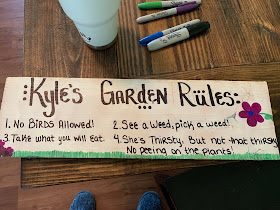 Kyle's Garden Rules:
1. No Birds Allowed!
2. See a Weed, pick a weed!
3. Take what you will Eat.
4. She's Thirsty, But not that thirsty
No peeing on the plants!